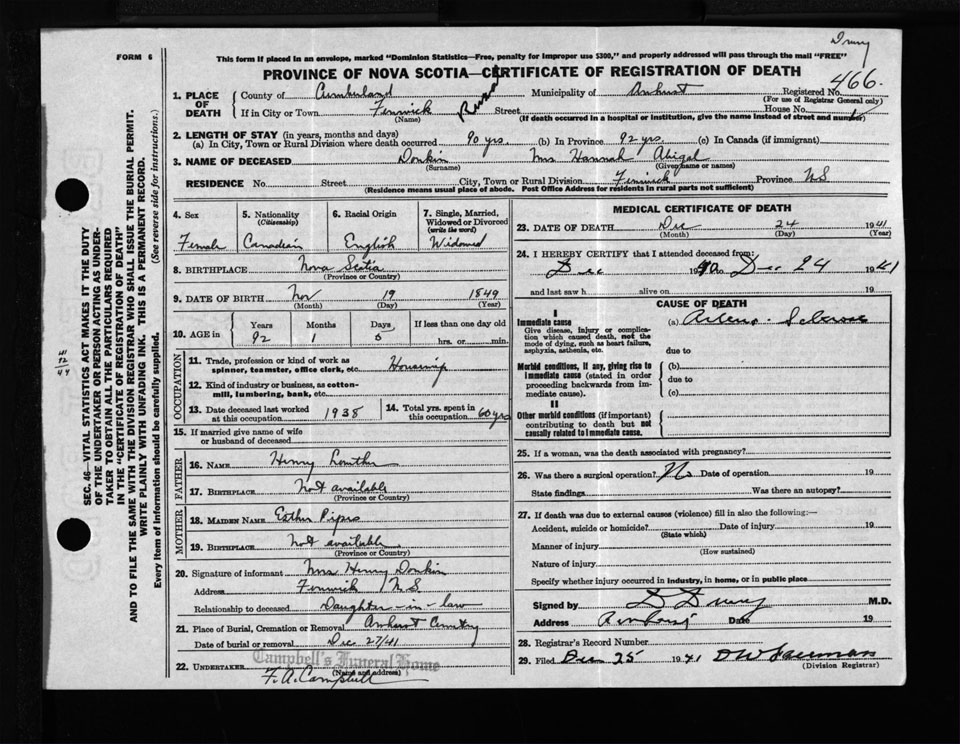 Drury
FORM 6
This form if placed in an envelope, marked "Dominion Statistics—Free, penalty for improper use $300," and properly addressed will pass through the mail "FREE"
PROVINCE OF NOVA SCOTIA—CERTIFICATE OF REGISTRATION OF DEATH
466.
1. PLACE OF DEATH
County of Cumberland Municipality of Amherst Registered No.
(For use of Registrar General only)
If in City or Town Fenwick Rural Street House No.
(Name) (If death occurred in a hospital or institution, give the name instead of street and number)
2. LENGTH OF STAY (in years, months and days)
(a) In City, Town or Rural Division where death occurred 90 yrs. (b) In Province 92 yrs. (c) In Canada (if immigrant)
3. NAME OF DECEASED Donkin Mrs. Hannah Abigal
(Surname) (Given name or names)
RESIDENCE No. Street City, Town or Rural Division Fenwick Province N.S.
(Residence means usual place of abode. Post Office Address for residents in rural parts not sufficient)
4. Sex
Female
5. Nationality
(Citizenship)
Canadian
6. Racial Origin
English
7. Single, Married, Widowed or Divorced
(write the word)
Widowed
8. BIRTHPLACE Nova Scotia
(Province or Country)
9. DATE OF BIRTH Nov 19 1849
(Month) (Day) (Year)
10. AGE in
Years Months Days If less than one day old
92 1 hrs. or min.
OCCUPATION
11. Trade, profession or kind of work as
spinner, teamster, office clerk, etc. Housewife
12. Kind of industry or business, as cotton-
mill, lumbering, bank, etc.
13. Date deceased last worked
at this occupation 1938
14. Total yrs. spent in
this occupation 60 yrs
15. If married give name of wife
or husband of deceased
FATHER
16. NAME Henry Lowther
17. BIRTHPLACE Not available
(Province or Country)
MOTHER
18. MAIDEN NAME Esther Pipes
19. BIRTHPLACE Not available
(Province or Country)
20. Signature of informant Mrs Henry Donkin
Address Fenwick N.S.
Relationship to deceased Daughter-in-law
21. Place of Burial, Cremation or Removal Amherst Cemetry
Date of burial or removal Dec 27/41
22. UNDERTAKER Campbell's Funeral Home
(Name and address)
F. A. Campbell
MEDICAL CERTIFICATE OF DEATH
23. DATE OF DEATH Dec 24 1941
(Month) (Day) (Year)
24. I HEREBY CERTIFY that I attended deceased from:
Dec 19 Dec 24 1941
and last saw h alive on 19
CAUSE OF DEATH
I
Immediate cause (a) Arterio-
Give disease, injury or complica-
tion which caused death, not the
mode of dying, such as heart failure,
asphyxia, asthenia, etc.
due to
Morbid conditions, if any, giving rise to (b)
immediate cause (stated in order
proceeding backwards from im-
mediate cause).
due to
(c)
II
Other morbid conditions (if important)
contributing to death but not
causally related to immediate cause.
25. If a woman, was the death associated with pregnancy?
26. Was there a surgical operation? No Date of operation 19
State findings Was there an autopsy?
27. If death was due to external causes (violence) fill in also the following:—
Accident, suicide or homicide? Date of injury 19
(State which)
Manner of injury
(How sustained)
Nature of injury
Specify whether injury occurred in industry, in home, or in public place
Signed by D Drury M.D.
Address Amherst Date 19
28. Registrar's Record Number
29. Filed Dec 25 1941
(Division Registrar)
SEC. 46—VITAL STATISTICS ACT MAKES IT THE DUTY
OF THE UNDERTAKER OR PERSON ACTING AS UNDER-
TAKER TO OBTAIN ALL THE PARTICULARS REQUIRED
IN THE "CERTIFICATE OF REGISTRATION OF DEATH"
AND TO FILE THE SAME WITH THE DIVISION REGISTRAR WHO SHALL ISSUE THE BURIAL PERMIT.
WRITE PLAINLY WITH UNFADING INK. THIS IS A PERMANENT RECORD.
Every item of information should be carefully supplied. (See reverse side for instructions.)